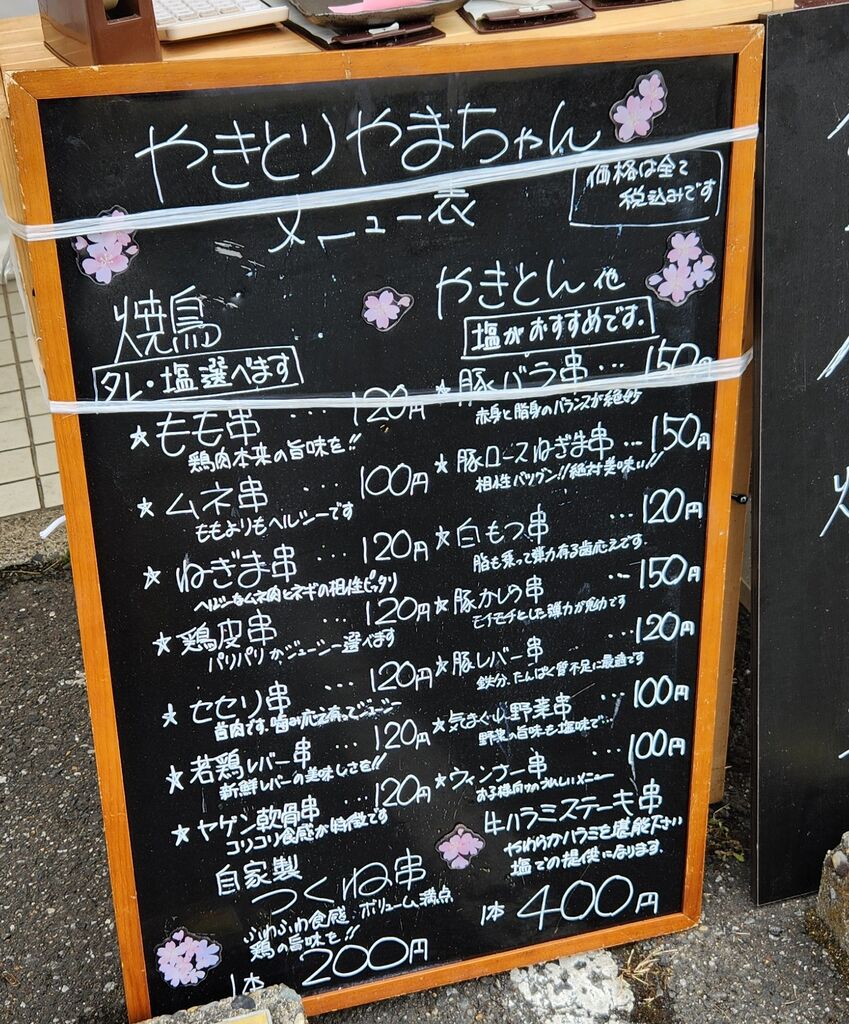 やきとりやまちゃん
メニュー表
価格は全て
税込みです
焼鳥
タレ・塩選べます
★もも串 … 120円
鶏肉本来の旨味を!!
★ムネ串 … 100円
ももよりもヘルシーです
★ねぎま串 … 120円
ヘルシーなムネ肉とネギの相性ピッタリ
★鶏皮串 … 120円
パリパリかジューシー選べます
★セセリ串 … 120円
首肉です。噛み応え有ってジューシー
★若鶏レバー串 … 120円
新鮮レバーの美味しさを!!
★ヤゲン軟骨串 … 120円
コリコリ食感が特徴です
自家製
つくね串
ふわふわ食感 ボリューム満点
鶏の旨味を!!
1本 200円
やきとん他
塩がおすすめです。
★豚バラ串 … 150円
赤身と脂身のバランスが絶妙
★豚ロースねぎま串 … 150円
相性バツグン!!絶対美味い!!
★白もつ串 … 120円
脂も乗って弾力有る歯応えです。
★豚かしら串 … 150円
モチモチとした弾力が魅力です
★豚レバー串 … 120円
鉄分、たんぱく質不足に最適です
★気まぐれ野菜串 … 100円
野菜の旨味を塩味で…
★ウィンナー串 … 100円
お子様向けのうれしいメニュー
牛ハラミステーキ串
やわらかハラミを堪能下さい
塩での提供になります。
1本 400円